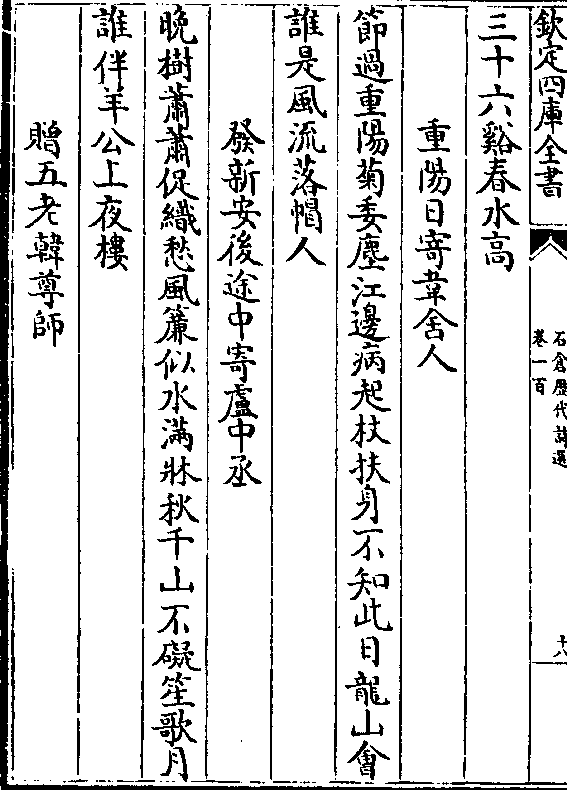 欽定四庫全書
石倉歷代詩選
卷一百
十八
三十六谿春水高
重陽日寄韋舍人
節過重陽菊委塵江邊病起杖扶身不知此日龍山㑹
誰是風流落帽人
發新安後途中寄盧中丞
晚樹蕭蕭促織愁風簾似水滿牀秋千山不礙笙歌月
誰伴羊公上夜樓
贈五老韓尊師